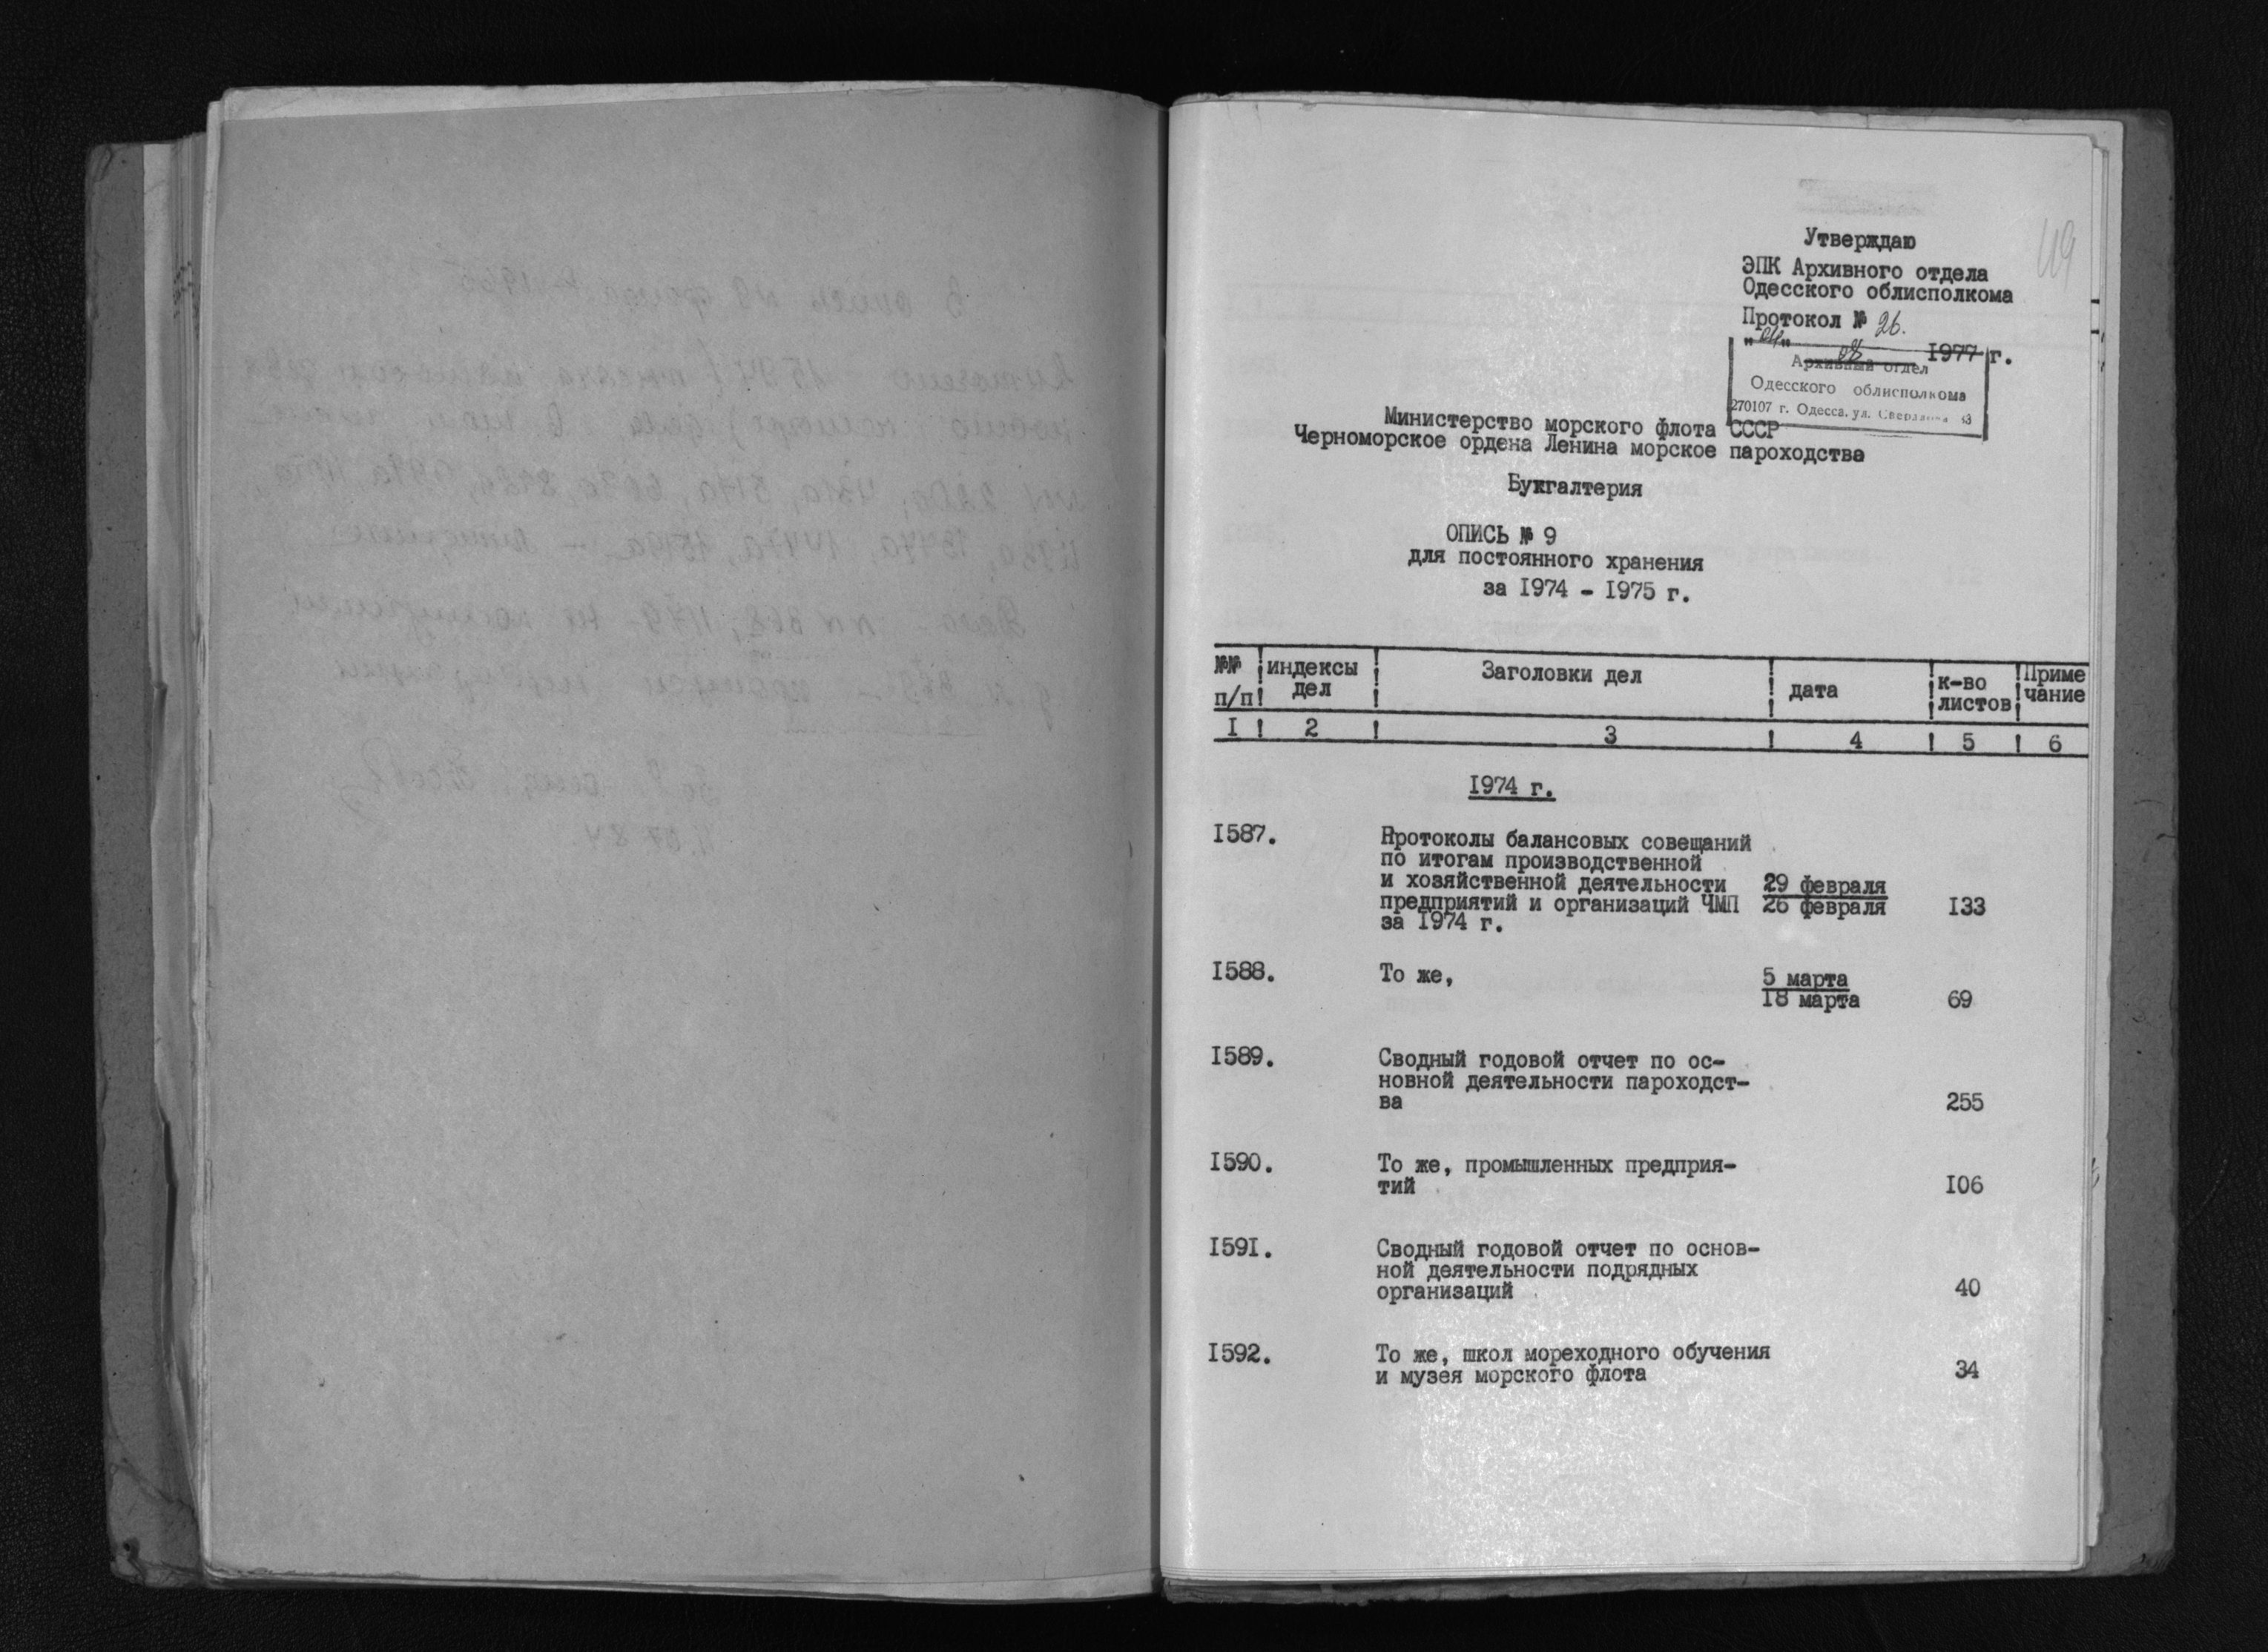 119
Утверждаю
ЭПК Архивного отдела
Одесского облисполкома
Протокол № 26.
1977 г.
Архивный отдел
Одесского облисполкома
270107 г. Одесса, ул.
Министерство морского флота СССР
Черноморское ордена Ленина морское пароходства
Бухгалтерия
ОПИСЬ № 9
для постоянного хранения
за I974 - I975 г.
№№ п/п ! индексы дел ! Заголовки дел ! дата ! к-во листов ! Приме чание
I ! 2 ! 3 ! 4 ! 5 ! 6
I974 г.
I587. Протоколы балансовых совещаний
по итогам производственной
и хозяйственной деятельности 29 февраля
предприятий и организаций ЧМП 26 февраля I33
за I974 г.
I588. То же, 5 марта
I8 марта 69
I589. Сводный годовой отчет по ос-
новной деятельности пароходст-
ва 255
I590. То же, промышленных предприя-
тий I06
I59I. Сводный годовой отчет по основ-
ной деятельности подрядных
организаций 40
I592. То же, школ мореходного обучения
и музея морского флота 34